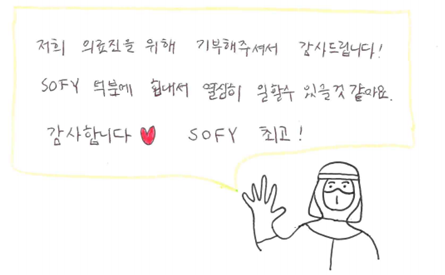 저희 의료진을 위해 기부해주셔서 감사드립니다!
SOFY 덕분에 힘내서 열심히 일할수 있을것 같아요.
감사합니다 ♥ SOFY 최고!